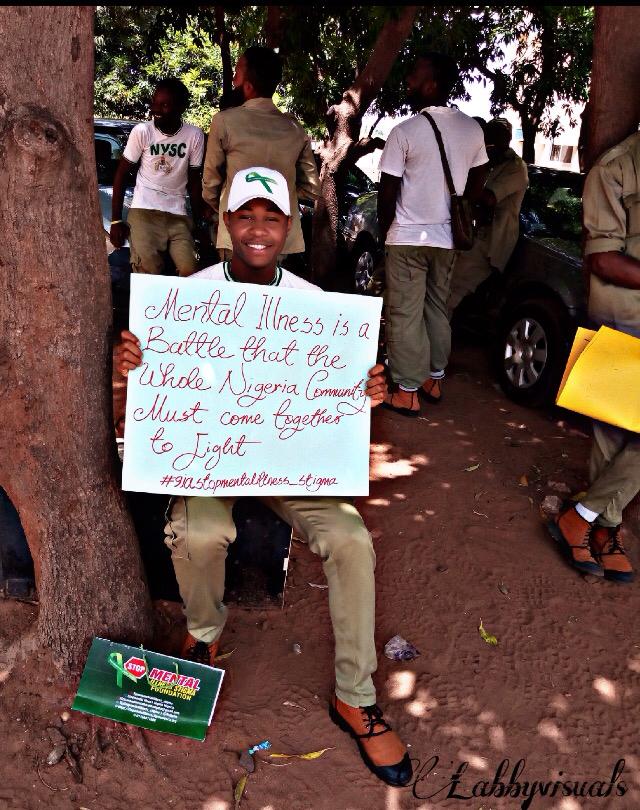 NYSC
Mental Illness is a
Battle that the
Whole Nigeria Community
Must come together
to Fight
#9jastopmentalillness_stigma
STOP
MENTAL
ILLNESS STIGMA
FOUNDATION
Labbyvisuals